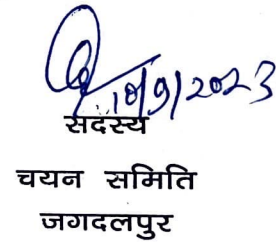 10/9/2023
सदस्य
चयन समिति
जगदलपुर